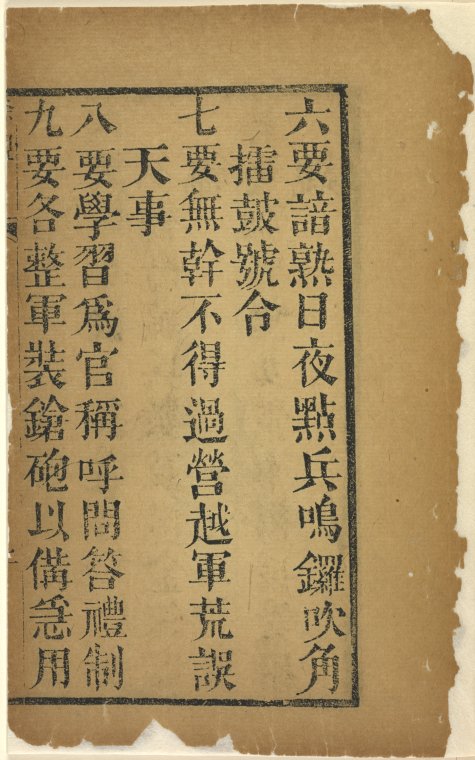 六要諳熟日夜點兵鳴鑼吹角
擂鼓號令
七要無幹不得過營越軍荒誤
天事
八要學習為官稱呼問答禮制
九要各整軍裝鎗砲以備急用